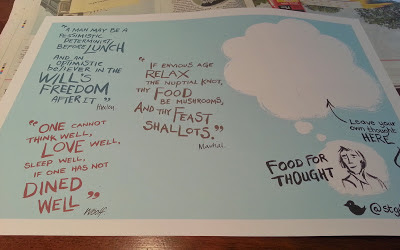 "A MAN MAY BE A
PESSIMISTIC
DETERMINIST
BEFORE LUNCH
AND AN
OPTIMISTIC
BELIEVER IN THE
WILL'S
FREEDOM
AFTER IT"
Huxley
"ONE CANNOT
THINK WELL,
LOVE WELL,
SLEEP WELL,
IF ONE HAS NOT
DINED
WELL"
Woolf
"IF ENVIOUS AGE
RELAX
THE NUPTIAL KNOT,
THY FOOD
BE MUSHROOMS,
AND THY FEAST
SHALLOTS."
Martial
LEAVE YOUR
OWN THOUGHT
HERE
FOOD FOR
THOUGHT